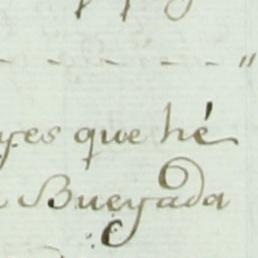 yes que hé
Bueyada